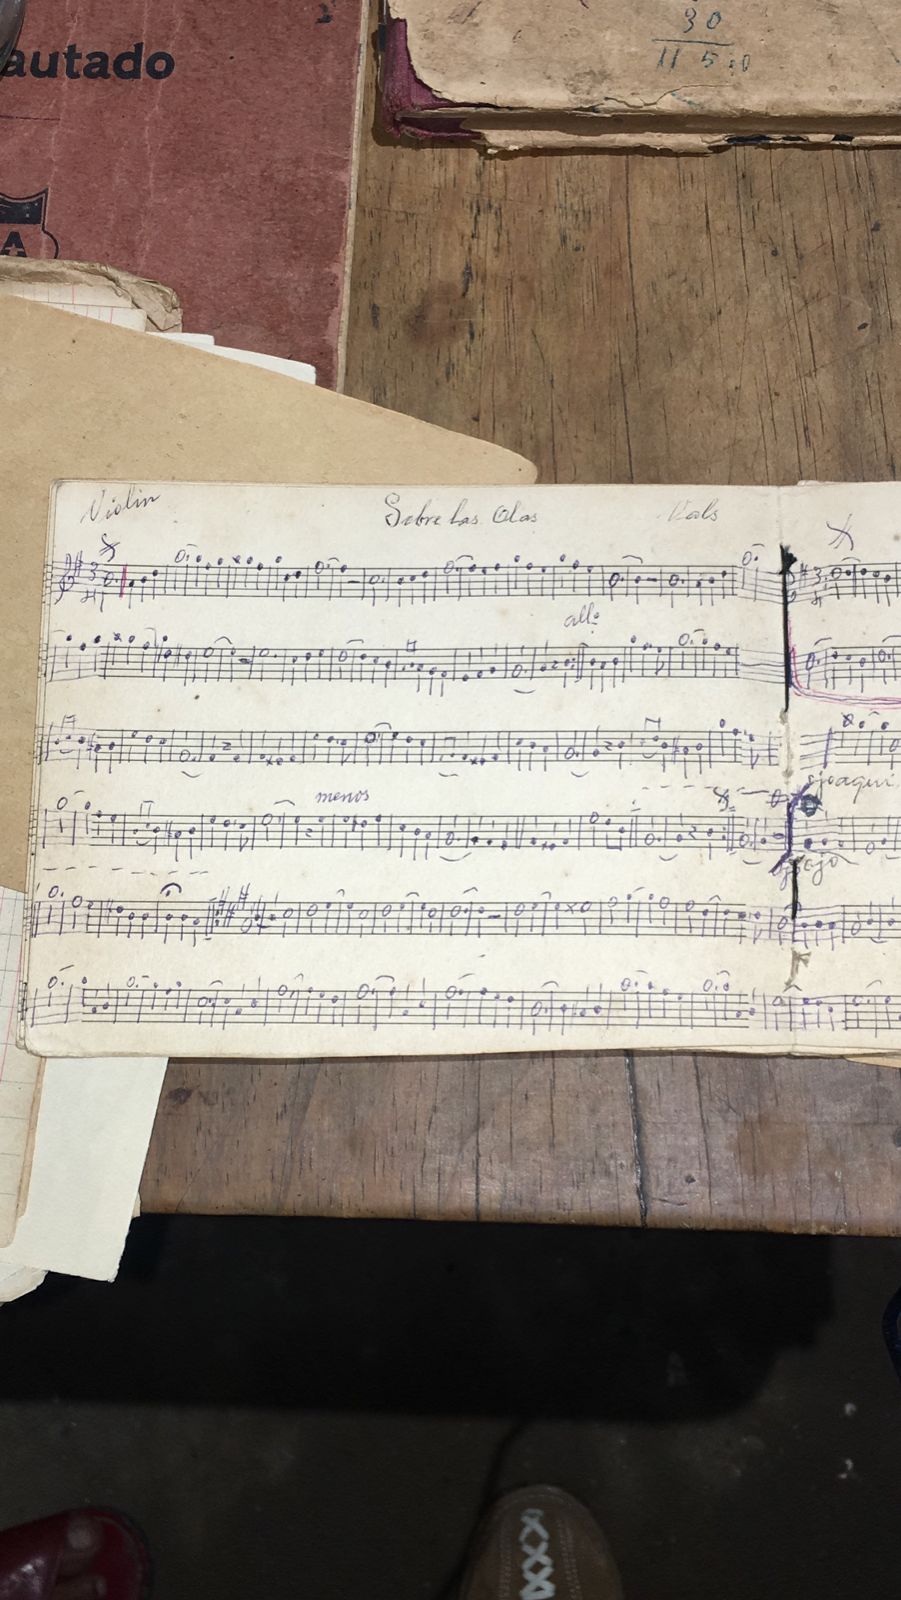 autado
30
11 5.0
A
Violin
Sobre las Olas
Vals
3
4
all:
menos
ojoaqui
ojo